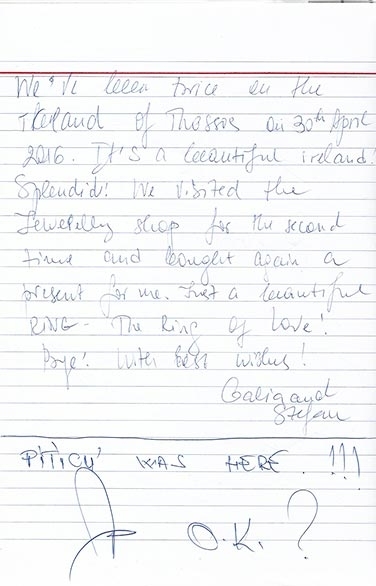 We've been twice on the
Ireland of Thassos on 30th April
2016. It's a beautiful ireland!
Splendid! We visited the
Jewerelly shop for the second
time and bought again a
present for me. Just a beautiful
RING - The Ring of Love!
Bye! With best wishes!
Galig and
Stefan
PITICU' WAS HERE. !!!
O.K. ?